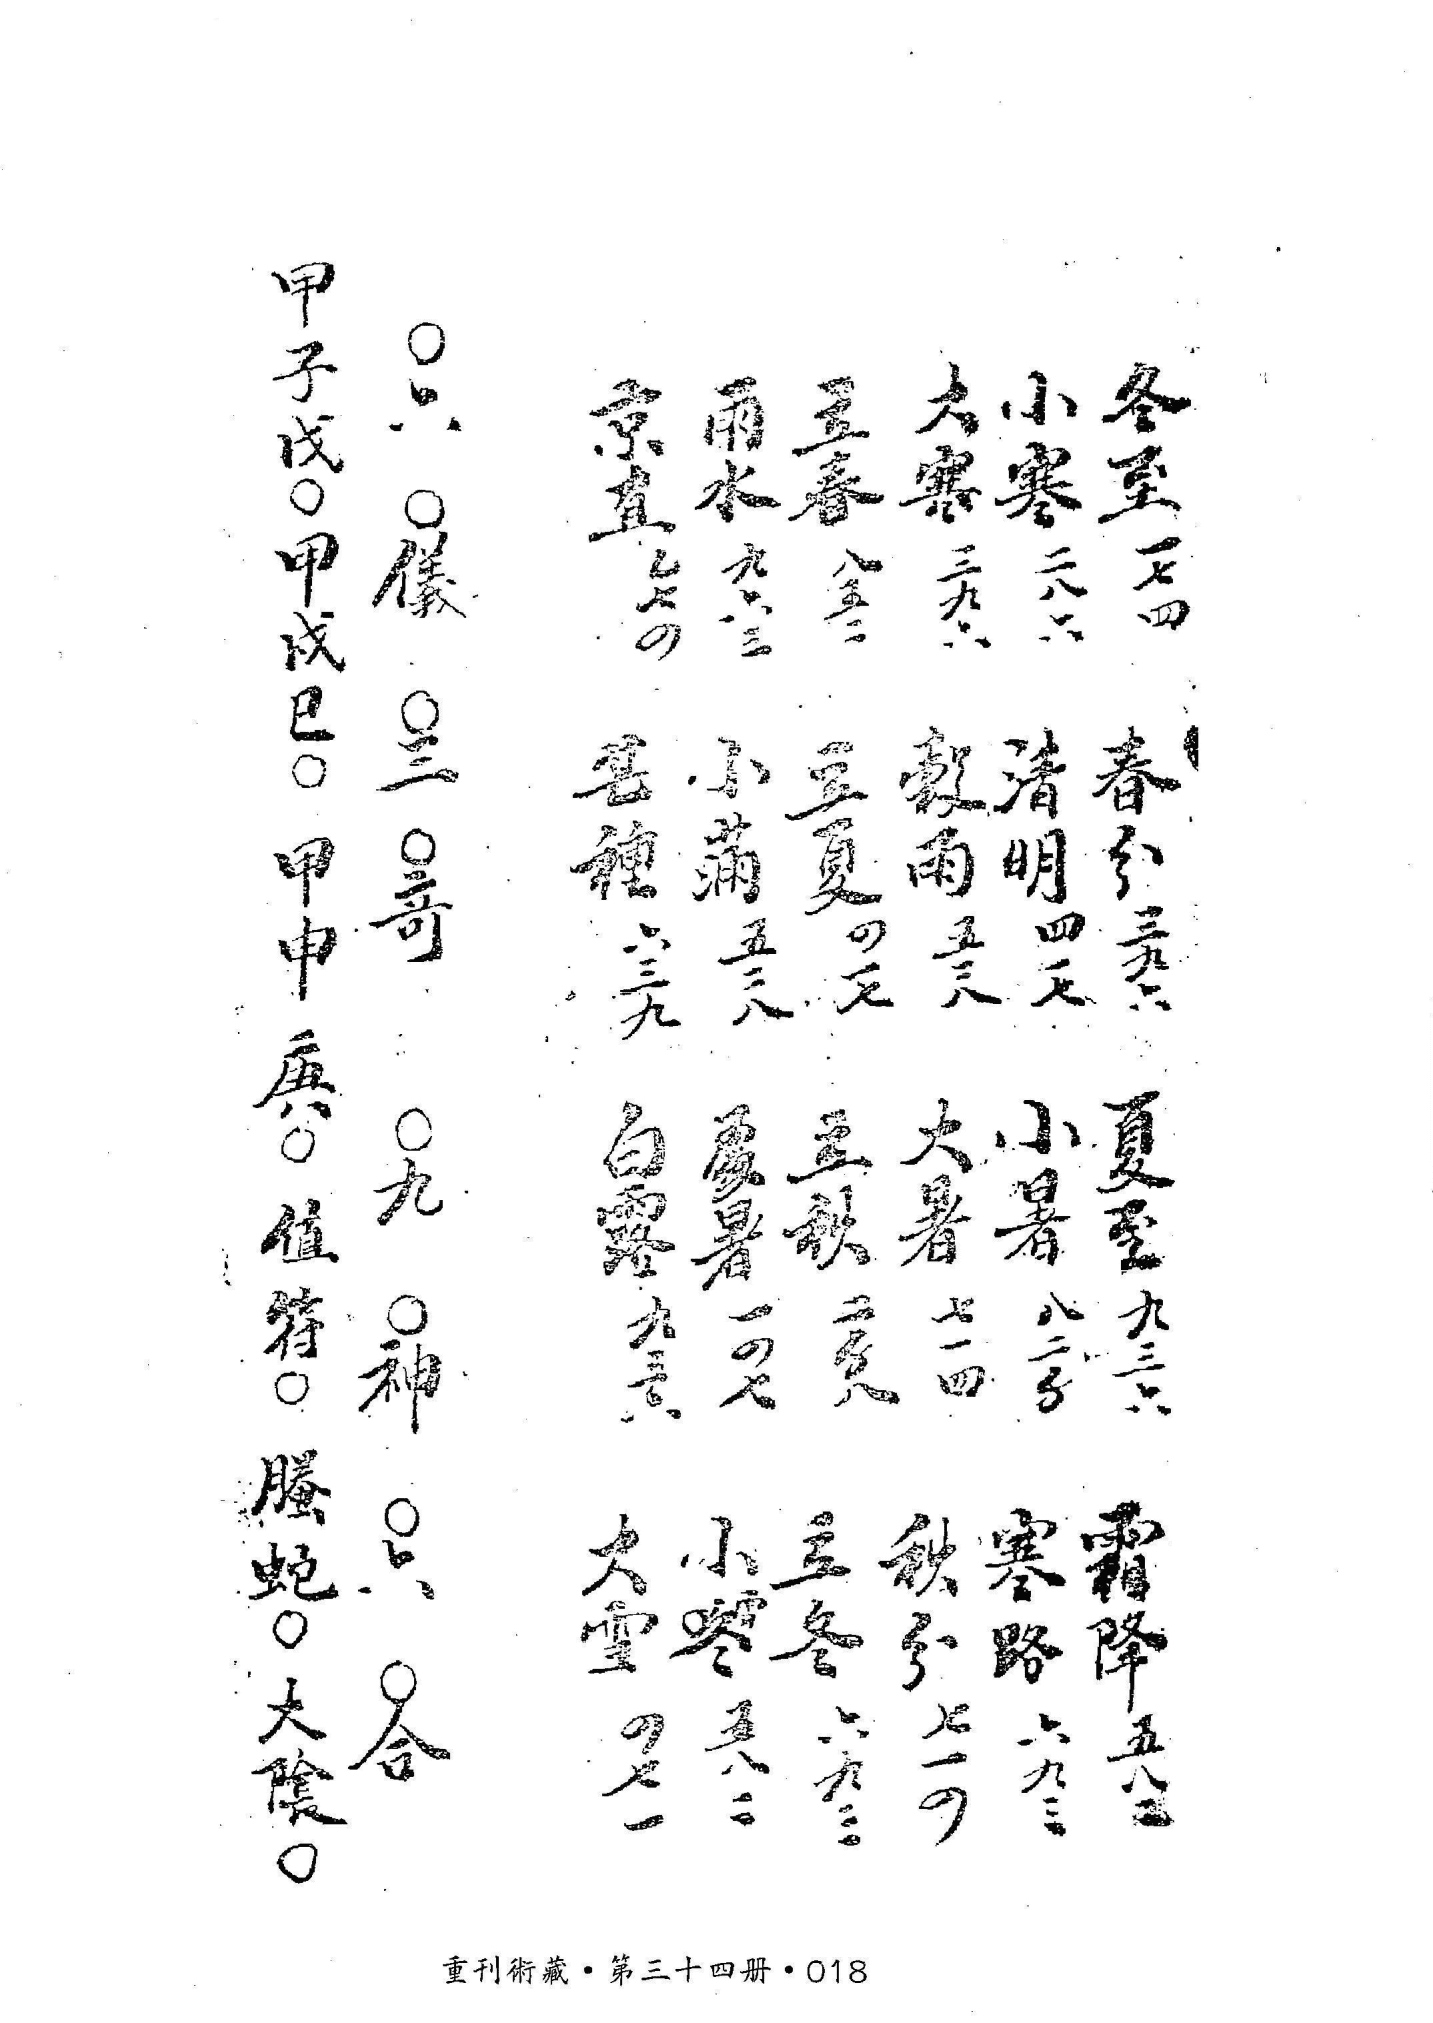 冬至 一七四 春分 三九六 夏至 九三六 霜降 五八二
小寒 二八六 清明 四一七 小暑 八二 寒路 六九三
大寒 三九六 穀雨 五二八 大暑 七一四 秋分 七一四
立春 八五二 立夏 四一七 立秋 二五八 立冬 六九三
雨水 九六三 小滿 五二八 處暑 一四七 小 五八二
京直 七四 芒種 六三九 白露 九三六 大雪 四七一
○六○儀○三○奇○九○神○六○合
甲子戊○甲戌巳○甲申庚○值符○螣蛇○大陰○
重刊術藏・第三十四册・018